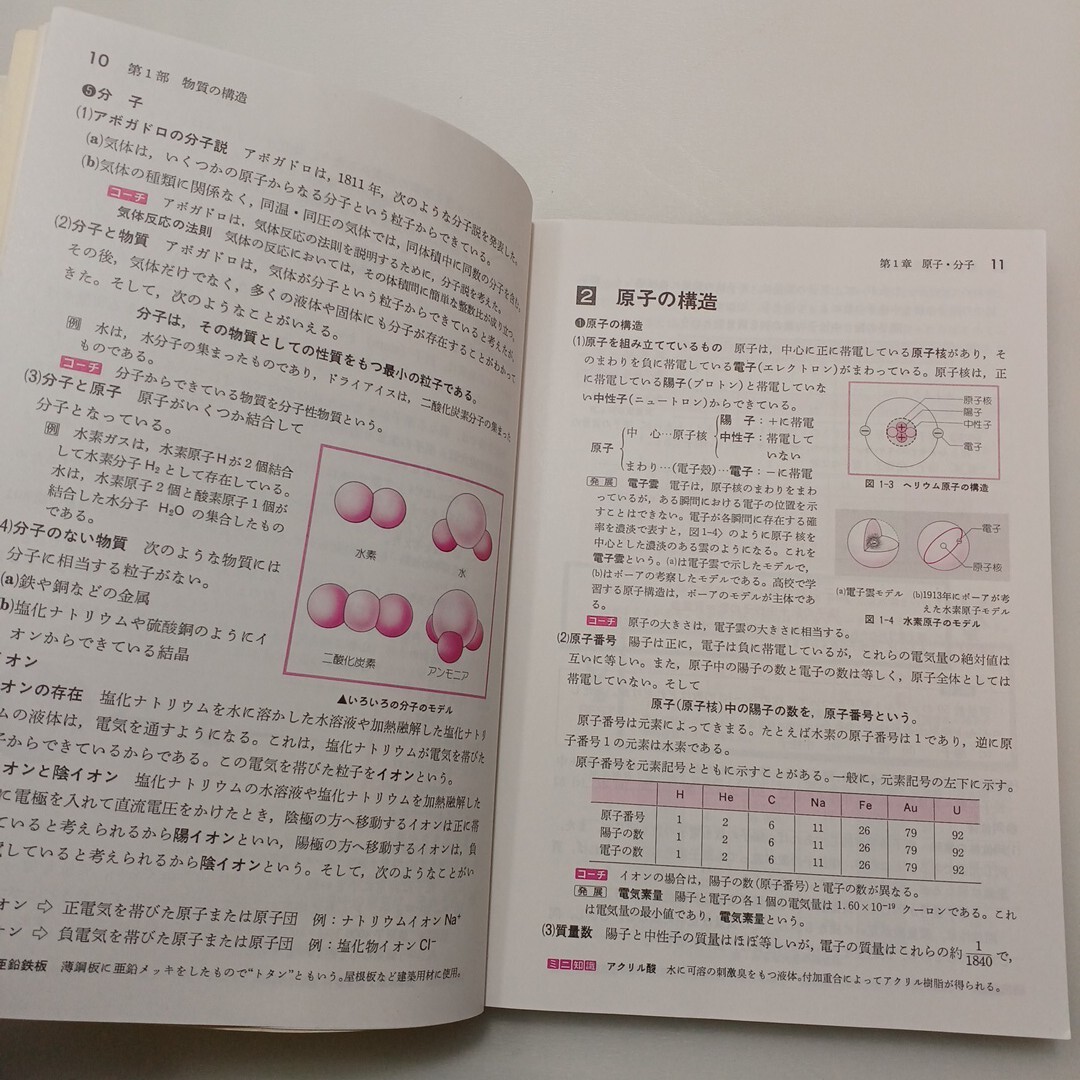 10 第1部 物質の構造
❺分 子
(1)アボガドロの分子説 アボガドロは，1811年，次のような分子説を発表した。
(a)気体は，いくつかの原子からなる分子という粒子からできている。
(b)気体の種類に関係なく，同温・同圧の気体では，同体積中に同数の分子を含む。
コーチ アボガドロは，気体反応の法則を説明するために，分子説を考えた。
気体反応の法則 気体の反応においては，その体積間に簡単な整数比が成り立つ。
(2)分子と物質 アボガドロは，気体が分子という粒子からできていると考えたが，
その後，気体だけでなく，多くの液体や固体にも分子が存在することがわかって
きた。そして，次のようなことがいえる。
分子は，その物質としての性質をもつ最小の粒子である。
例 水は，水分子の集まったものであり，ドライアイスは，二酸化炭素分子の集まった
ものである。
コーチ 分子からできている物質を分子性物質という。
(3)分子と原子 原子がいくつか結合して
分子となっている。
例 水素ガスは，水素原子Hが2個結合
して水素分子H₂として存在している。
水は，水素原子2個と酸素原子1個が
結合した水分子 H₂O の集合したもの
である。
4)分子のない物質 次のような物質には
分子に相当する粒子がない。
(a)鉄や銅などの金属
b)塩化ナトリウムや硫酸銅のようにイ
オンからできている結晶
水素
水
二酸化炭素
アンモニア
▲いろいろの分子のモデル
イオン
オンの存在 塩化ナトリウムを水に溶かした水溶液や加熱融解した塩化ナトリ
ムの液体は，電気を通すようになる。これは，塩化ナトリウムが電気を帯びた
子からできているからである。この電気を帯びた粒子をイオンという。
オンと陰イオン 塩化ナトリウムの水溶液や塩化ナトリウムを加熱融解した
に電極を入れて直流電圧をかけたとき，陰極の方へ移動するイオンは正に帯
ていると考えられるから陽イオンといい，陽極の方へ移動するイオンは，負
していると考えられるから陰イオンという。そして，次のようなことがい
オン ⇨ 正電気を帯びた原子または原子団 例：ナトリウムイオンNa⁺
ン ⇨ 負電気を帯びた原子または原子団 例：塩化物イオンCl⁻
亜鉛鉄板 薄鋼板に亜鉛メッキをしたもので“トタン”ともいう。屋根板など建築用材に使用。
第1章 原子・分子 11
2 原子の構造
❶原子の構造
(1)原子を組み立てているもの 原子は，中心に正に帯電している原子核があり，そ
のまわりを負に帯電している電子(エレクトロン)がまわっている。原子核は，正
に帯電している陽子(プロトン)と帯電していな
い中性子(ニュートロン)からできている。
原子 中 心…原子核 陽 子：＋に帯電
中性子：帯電して
いない
まわり…(電子殻)…電子：－に帯電
原子核
陽子
中性子
電子
図 1-3 ヘリウム原子の構造
発展 電子雲 電子は，原子核のまわりをまわ
っているが，ある瞬間における電子の位置を示
すことはできない。電子が各瞬間に存在する確
率を濃淡で表すと，図1-4〉のように原子核を
中心とした濃淡のある雲のようになる。これを
電子雲という。(a)は電子雲で示したモデルで，
(b)はボーアの考察したモデルである。高校で学
習する原子構造は，ボーアのモデルが主体であ
る。
電子
原子核
(a)電子雲モデル (b)1913年にボーアが考
えた水素原子モデル
図 1-4 水素原子のモデル
コーチ 原子の大きさは，電子雲の大きさに相当する。
(2)原子番号 陽子は正に，電子は負に帯電しているが，これらの電気量の絶対値は
互いに等しい。また，原子中の陽子の数と電子の数は等しく，原子全体としては
帯電していない。そして
原子(原子核)中の陽子の数を，原子番号という。
原子番号は元素によってきまる。たとえば水素の原子番号は1であり，逆に原
子番号1の元素は水素である。
原子番号を元素記号とともに示すことがある。一般に，元素記号の左下に示す。
H He C Na Fe Au U
原子番号 1 2 6 11 26 79 92
陽子の数 1 2 6 11 26 79 92
電子の数 1 2 6 11 26 79 92
コーチ イオンの場合は，陽子の数(原子番号)と電子の数が異なる。
発展 電気素量 陽子と電子の各1個の電気量は 1.60×10⁻¹⁹ クーロンである。これ
は電気量の最小値であり，電気素量という。
(3)質量数 陽子と中性子の質量はほぼ等しいが，電子の質量はこれらの約 1/1840 で，
ミニ知識 アクリル酸 水に可溶の刺激臭をもつ液体。付加重合によってアクリル樹脂が得られる。